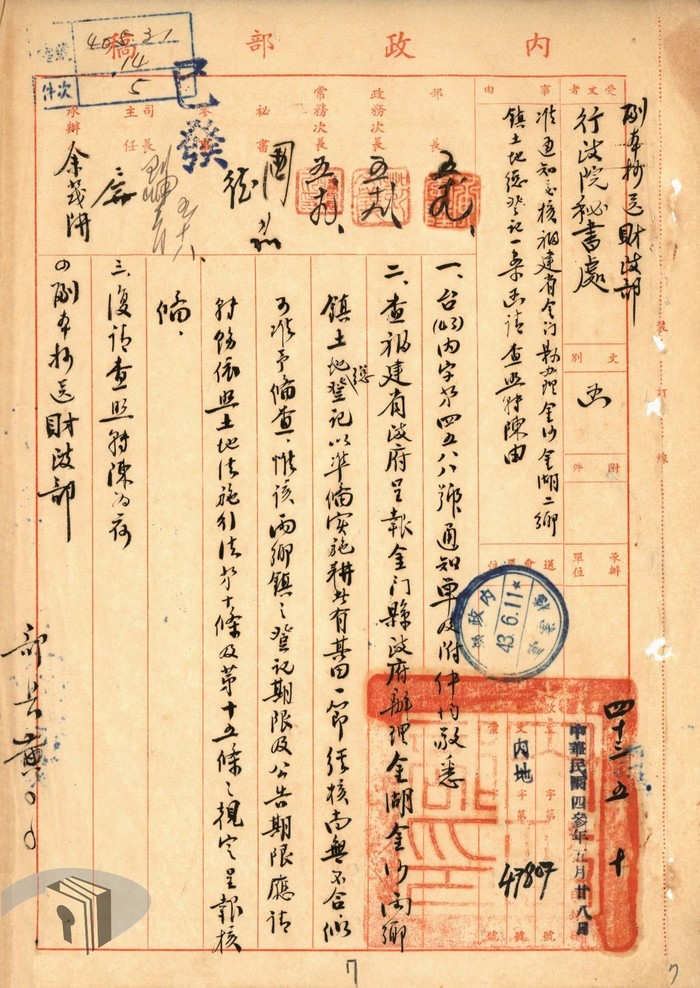 內政部稿
副本抄送財政部
受文者
行政院秘書處
文別
函
附件
承辦單位
事由
准通知交核福建省金門縣辦理金沙金湖二鄉
鎮土地總登記一案函請查照轉陳由
部長
政務次長
常務次長
秘書
司長
主任
承辦
已發
一、台(43)內字第四五八八號通知單及附件均敬悉
二、查福建省政府呈報金门縣政府辦理金湖金沙兩鄉
鎮土地總登記以準備實施耕者有其田一節經核尚無不合似
可准予備查、惟該兩鄉鎮之登記期限及公告期限應請
轉飭依照土地法施行法第十條及第十五條之規定呈報核
備、
三、復請查照轉陳為荷
副本抄送財政部
部長黃○○
內政部
43.6.11
四十三 五 十
中華民國四參年五月廿八日
內地
字第
47807
號
裝
訂
線
7
7